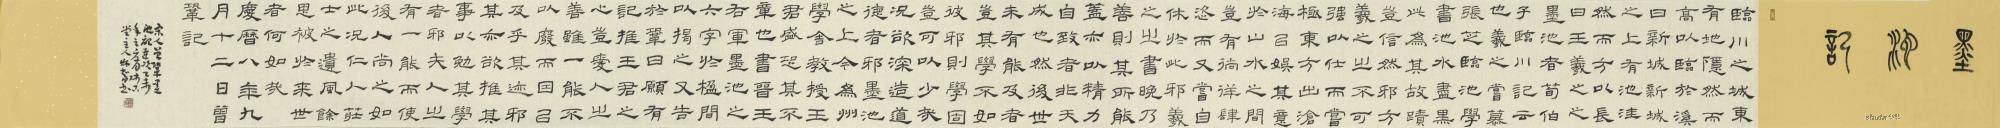 墨池記
臨川之城東
有地隱然而
高以臨於溪
曰新城新城
之上有池洼
然而方以長
曰王羲之之
墨池者荀伯
子臨川記云
也羲之嘗慕
張芝臨池學
書池水盡黑
此為其故蹟
豈信然邪方
羲之之不可
强以仕而嘗
極東方出滄
海以娛其意
於山水之間
豈有徜徉肆
恣而又嘗自
休於此邪羲
之之書晚乃
善則其所能
蓋亦以精力
自致者非天
成也然後世
未有能及者
豈其學不如
彼邪則學固
豈可以少哉
況欲深造道
德者邪墨池
之上今為州
學舍教授王
君盛恐其不
章也書晉王
右軍墨池之
六字於楹間
以揭之又告
於鞏曰願有
記推王君之
心豈愛人之
善雖一能不
以廢而因以
及乎其迹邪
其亦欲推其
事以勉其學
者邪夫人之
有一能而使
後人尚之如
此況仁人莊
士之遺風餘
思被於來世
者何如哉
慶曆八年九
月十二日曾
鞏記